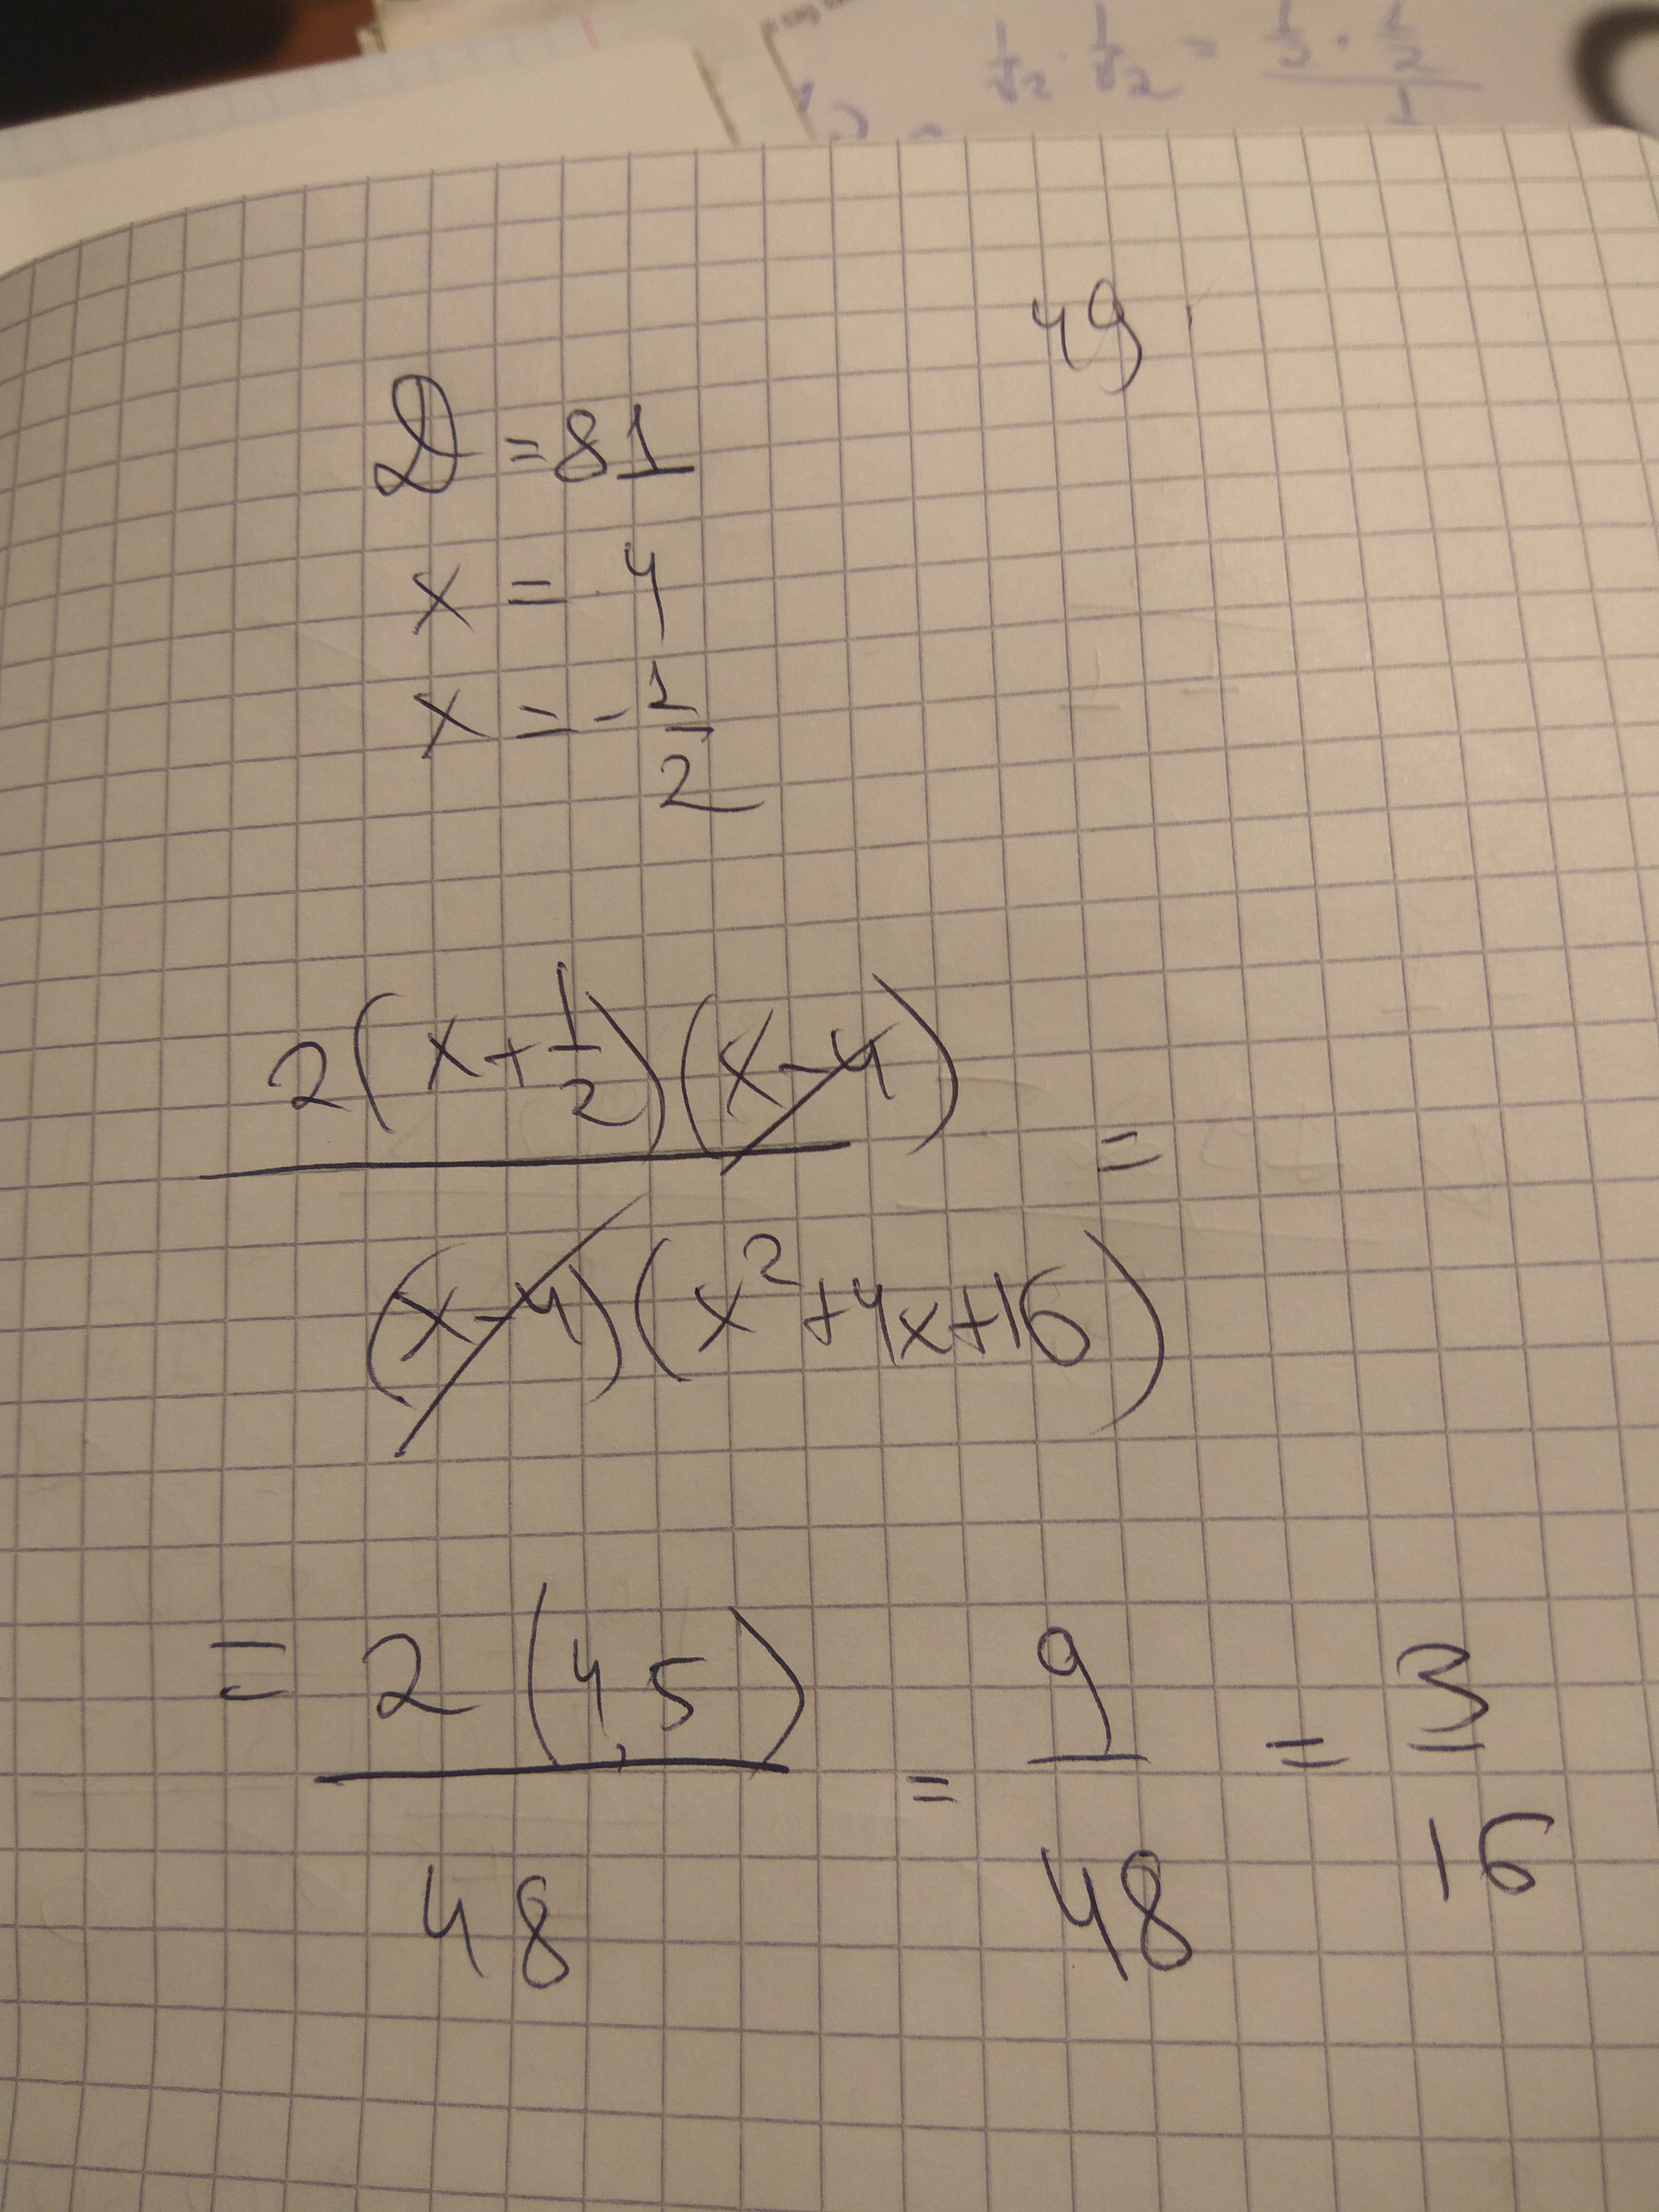 1/√2 · 1/√2 =
49
D = 81
x = 4
x = -1/2
2(x+1/2)(x-4)
=
(x-4)(x²+4x+16)
= 2(4,5)/48 = 9/48 = 3/16